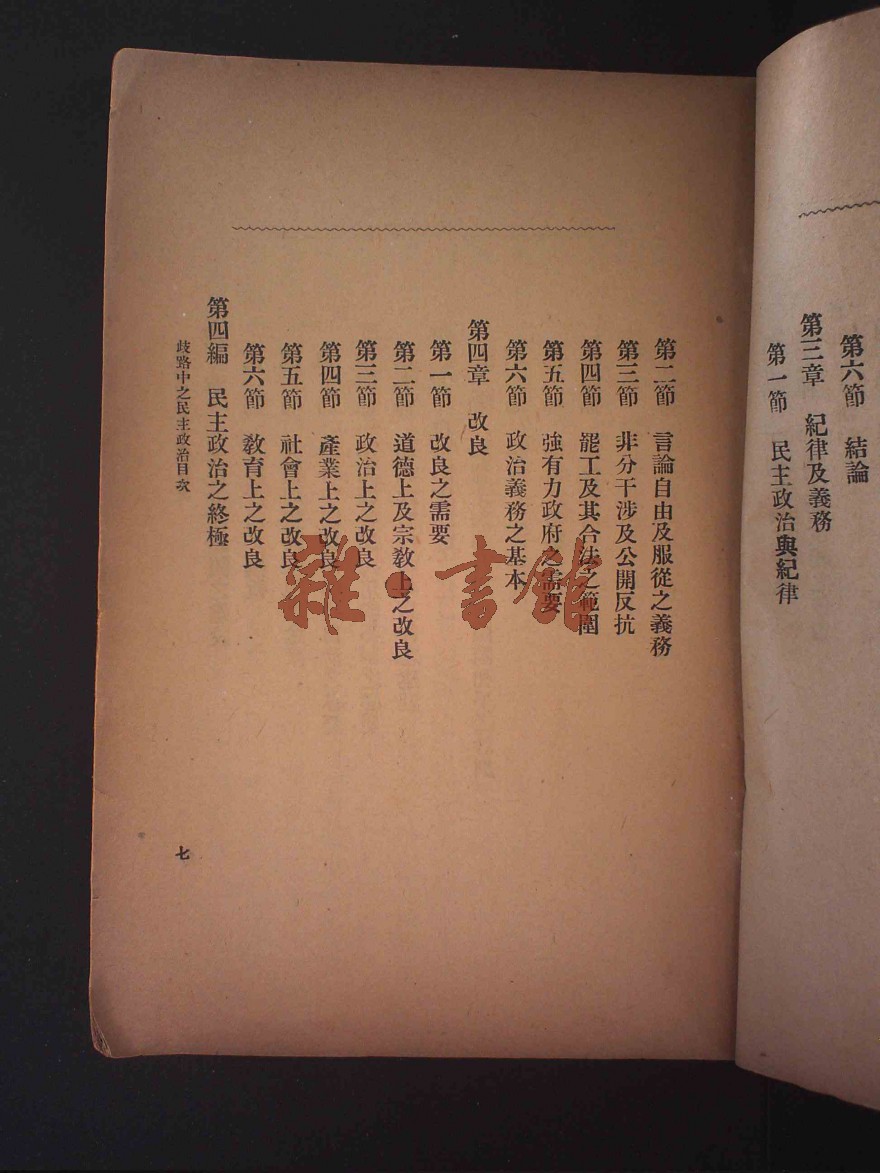 第六節　結論
第三章　紀律及義務
第一節　民主政治與紀律
第二節　言論自由及服從之義務
第三節　非分干涉及公開反抗
第四節　罷工及其合法之範圍
第五節　強有力政府之需要
第六節　政治義務之基本
第四章　改良
第一節　改良之需要
第二節　道德上及宗敎上之改良
第三節　政治上之改良
第四節　產業上之改良
第五節　社會上之改良
第六節　敎育上之改良
第四編　民主政治之終極
歧路中之民主政治目次
七
雜·書館